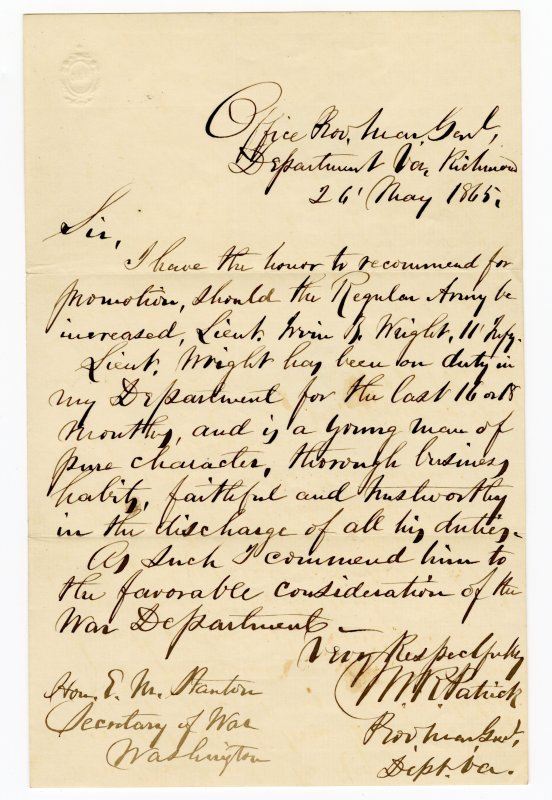 Office Prov. Mar. Genl.
Department Va, Richmond
26' May 1865.
Sir,
I have the honor to recommend for
promotion, should the Regular Army be
increased, Lieut. Irvin B. Wright, 11' Infy.
Lieut. Wright has been on duty in
my Department for the last 16 or 18
months, and is a young man of
pure character, thorough business
habits, faithful and trustworthy
in the discharge of all his duties.
As such I commend him to
the favorable consideration of the
War Department.
Very Respectfully
M R Patrick
Prov. Mar. Genl.
Dept. Va.
Hon. E. M. Stanton
Secretary of War
Washington